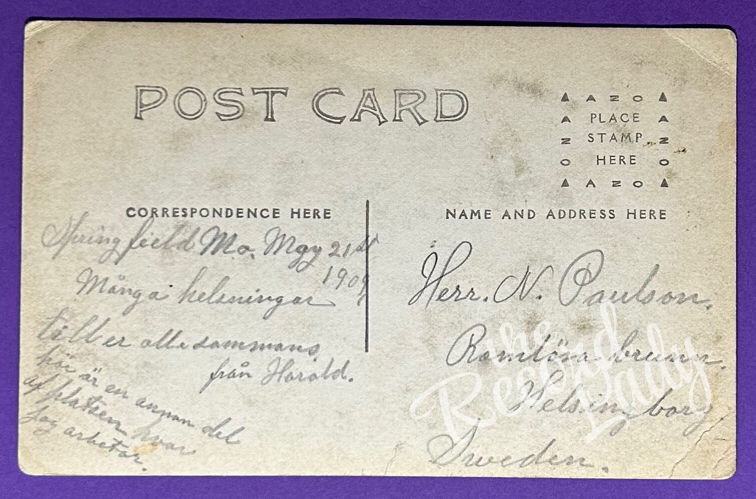 POST CARD
AZO
PLACE
STAMP
HERE
AZO
AZO
AZO
CORRESPONDENCE HERE
NAME AND ADDRESS HERE
Springfield Mo. May 21st
1909
Många helsningar
till er allesammans.
från Harold.
här är en annan del
af platsen hvar
jag arbetar.
Herr. N. Paulson.
Ramlösa brunn.
Helsingborg
Sweden.
the
Record
Lady